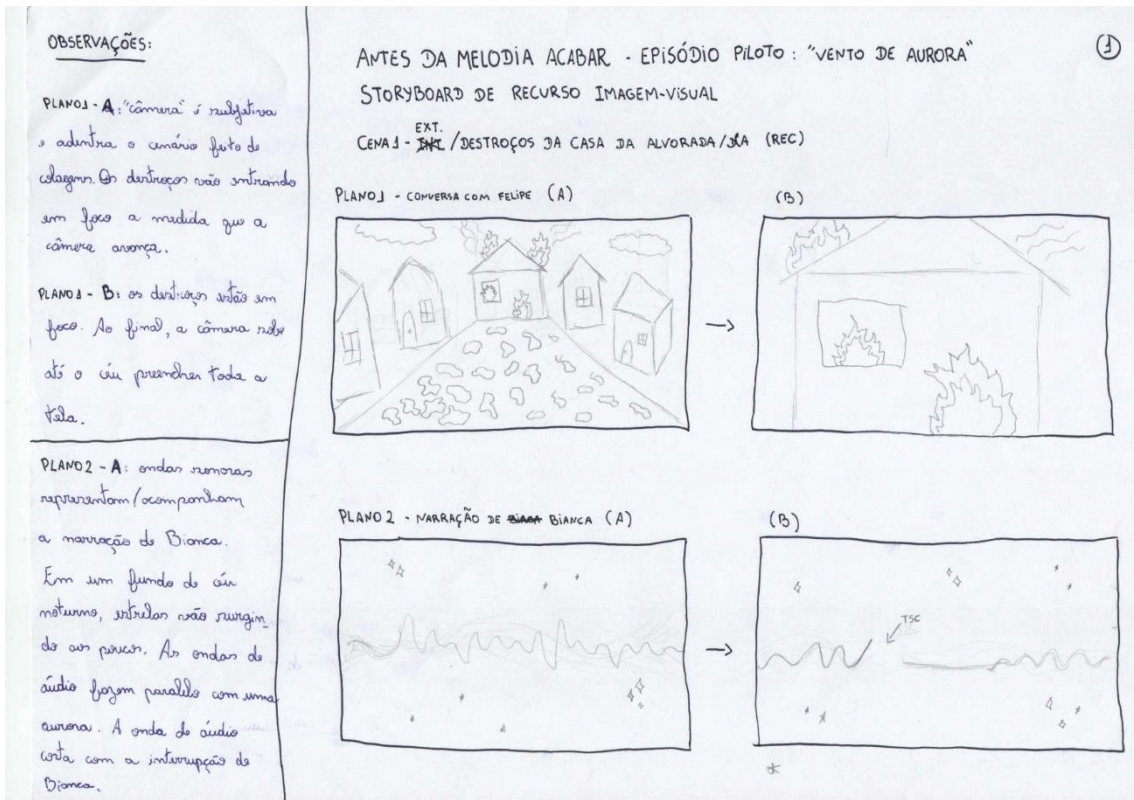 OBSERVAÇÕES:
PLANO1 - A: "câmera" é subjetiva
e adentra o cenário feito de
colagens. Os destroços vão entrando
em foco a medida que a
câmera avança.
PLANO1 - B: os destroços estão em
foco. Ao final, a câmera sobe
até o céu preencher toda a
tela.
PLANO2 - A: ondas sonoras
representam/acompanham
a narração de Bianca.
Em um fundo de céu
noturno, estrelas vão surgin
do aos poucos. As ondas de
áudio fazem paralelo com uma
aurora. A onda de áudio
corta com a interrupção de
Bianca.
①
ANTES DA MELODIA ACABAR - EPISÓDIO PILOTO: "VENTO DE AURORA"
STORYBOARD DE RECURSO IMAGEM-VISUAL
EXT.
CENA1 - INT./DESTROÇOS DA CASA DA ALVORADA/DIA (REC)
PLANO1 - CONVERSA COM FELIPE (A)
(B)
PLANO2 - NARRAÇÃO DE BIANCA (A)
(B)
TSC
*